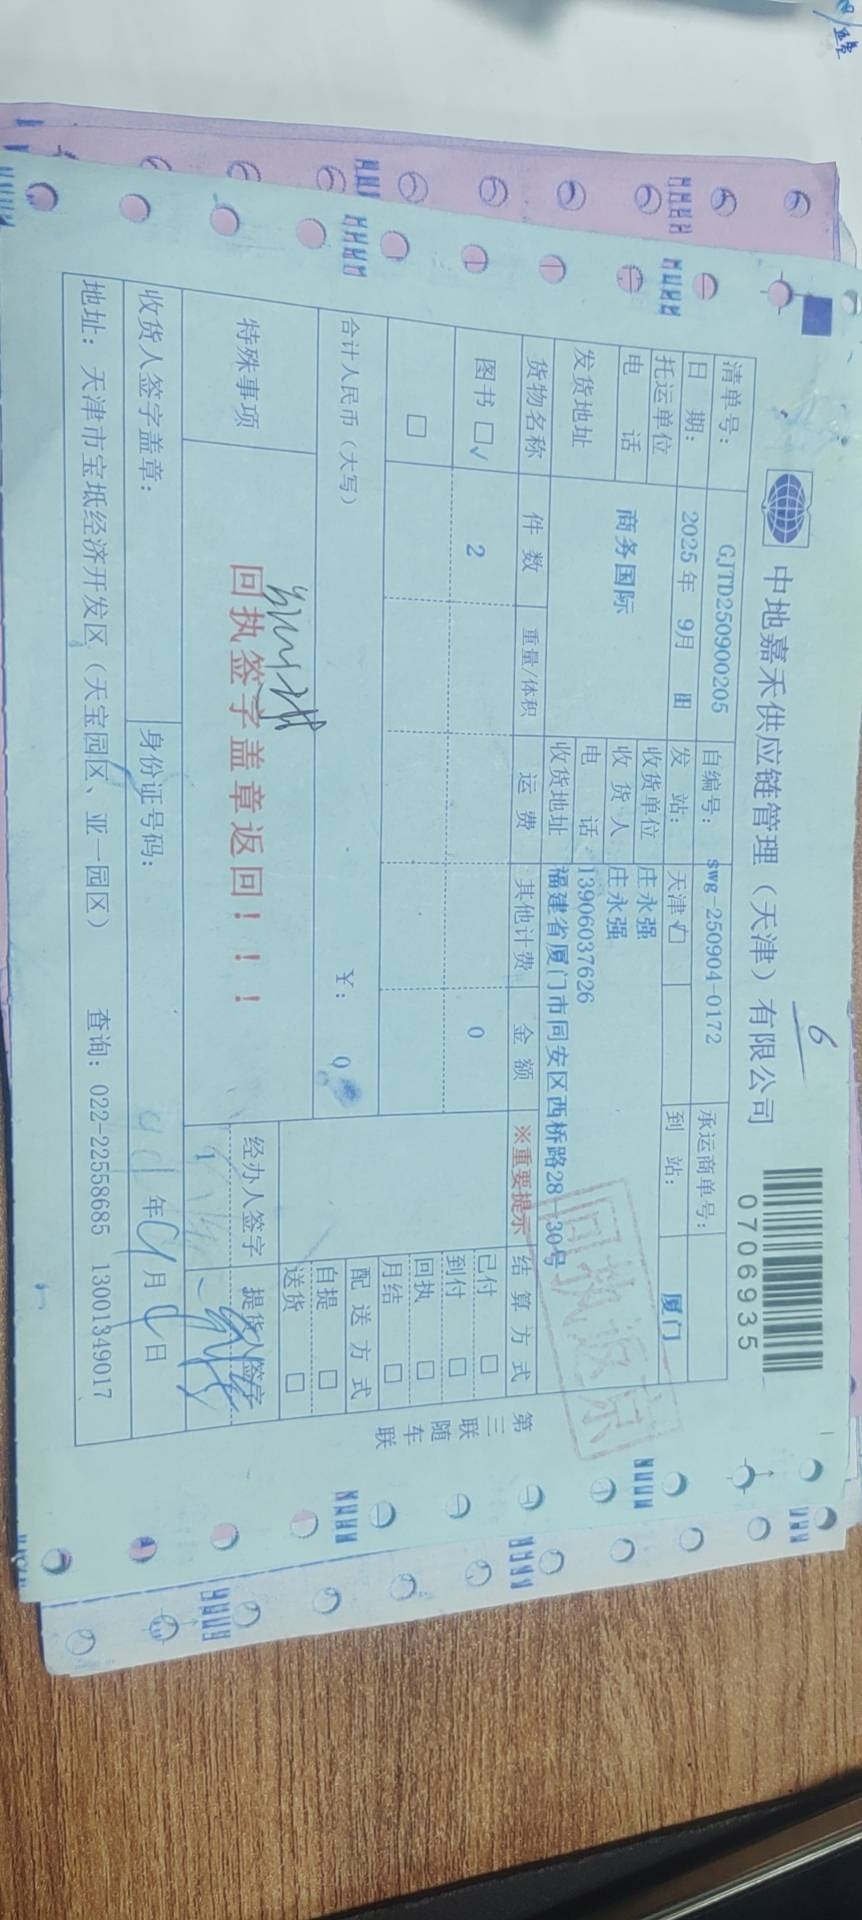 6
中地嘉禾供应链管理（天津）有限公司
0706935
清单号： GJTD250900205 自编号： swg-250904-0172 承运商单号：
日 期： 2025年 9月 日 发 站： 天津 到 站： 厦门
托运单位 商务国际 收货单位 庄永强
电 话 收 货 人 庄永强
发货地址 电 话 13906037626
收货地址 福建省厦门市同安区西桥路28-30号
回执返京
货物名称 件 数 重量/体积 运 费 其他计费 金 额 ※重要提示 结 算 方 式
图书 □√ 2 0 已付 □
□ 到付 □
回执 □
月结 □
合计人民币（大写） ￥： 0 配 送 方 式
自提 □
送货 □
特殊事项 回执签字盖章返回！！！ 经办人签字 提货人签字
1
收货人签字盖章： 身份证号码： 年 月 日
地址：天津市宝坻经济开发区（天宝园区、亚一园区） 查询：022-22558685 13001349017
第三联随车联